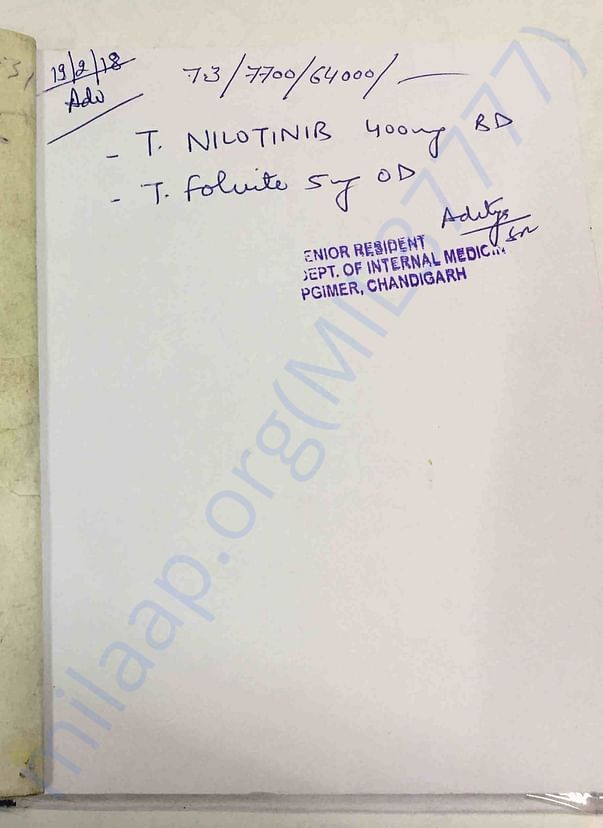 19/2/18
Adv
7.3/7700/64000/
- T. NILOTINIB 400mg BD
- T. folvite 5mg OD
Aditya
SR
ENIOR RESIDENT
DEPT. OF INTERNAL MEDICIN
PGIMER, CHANDIGARH
milaap.org(MILB7777)